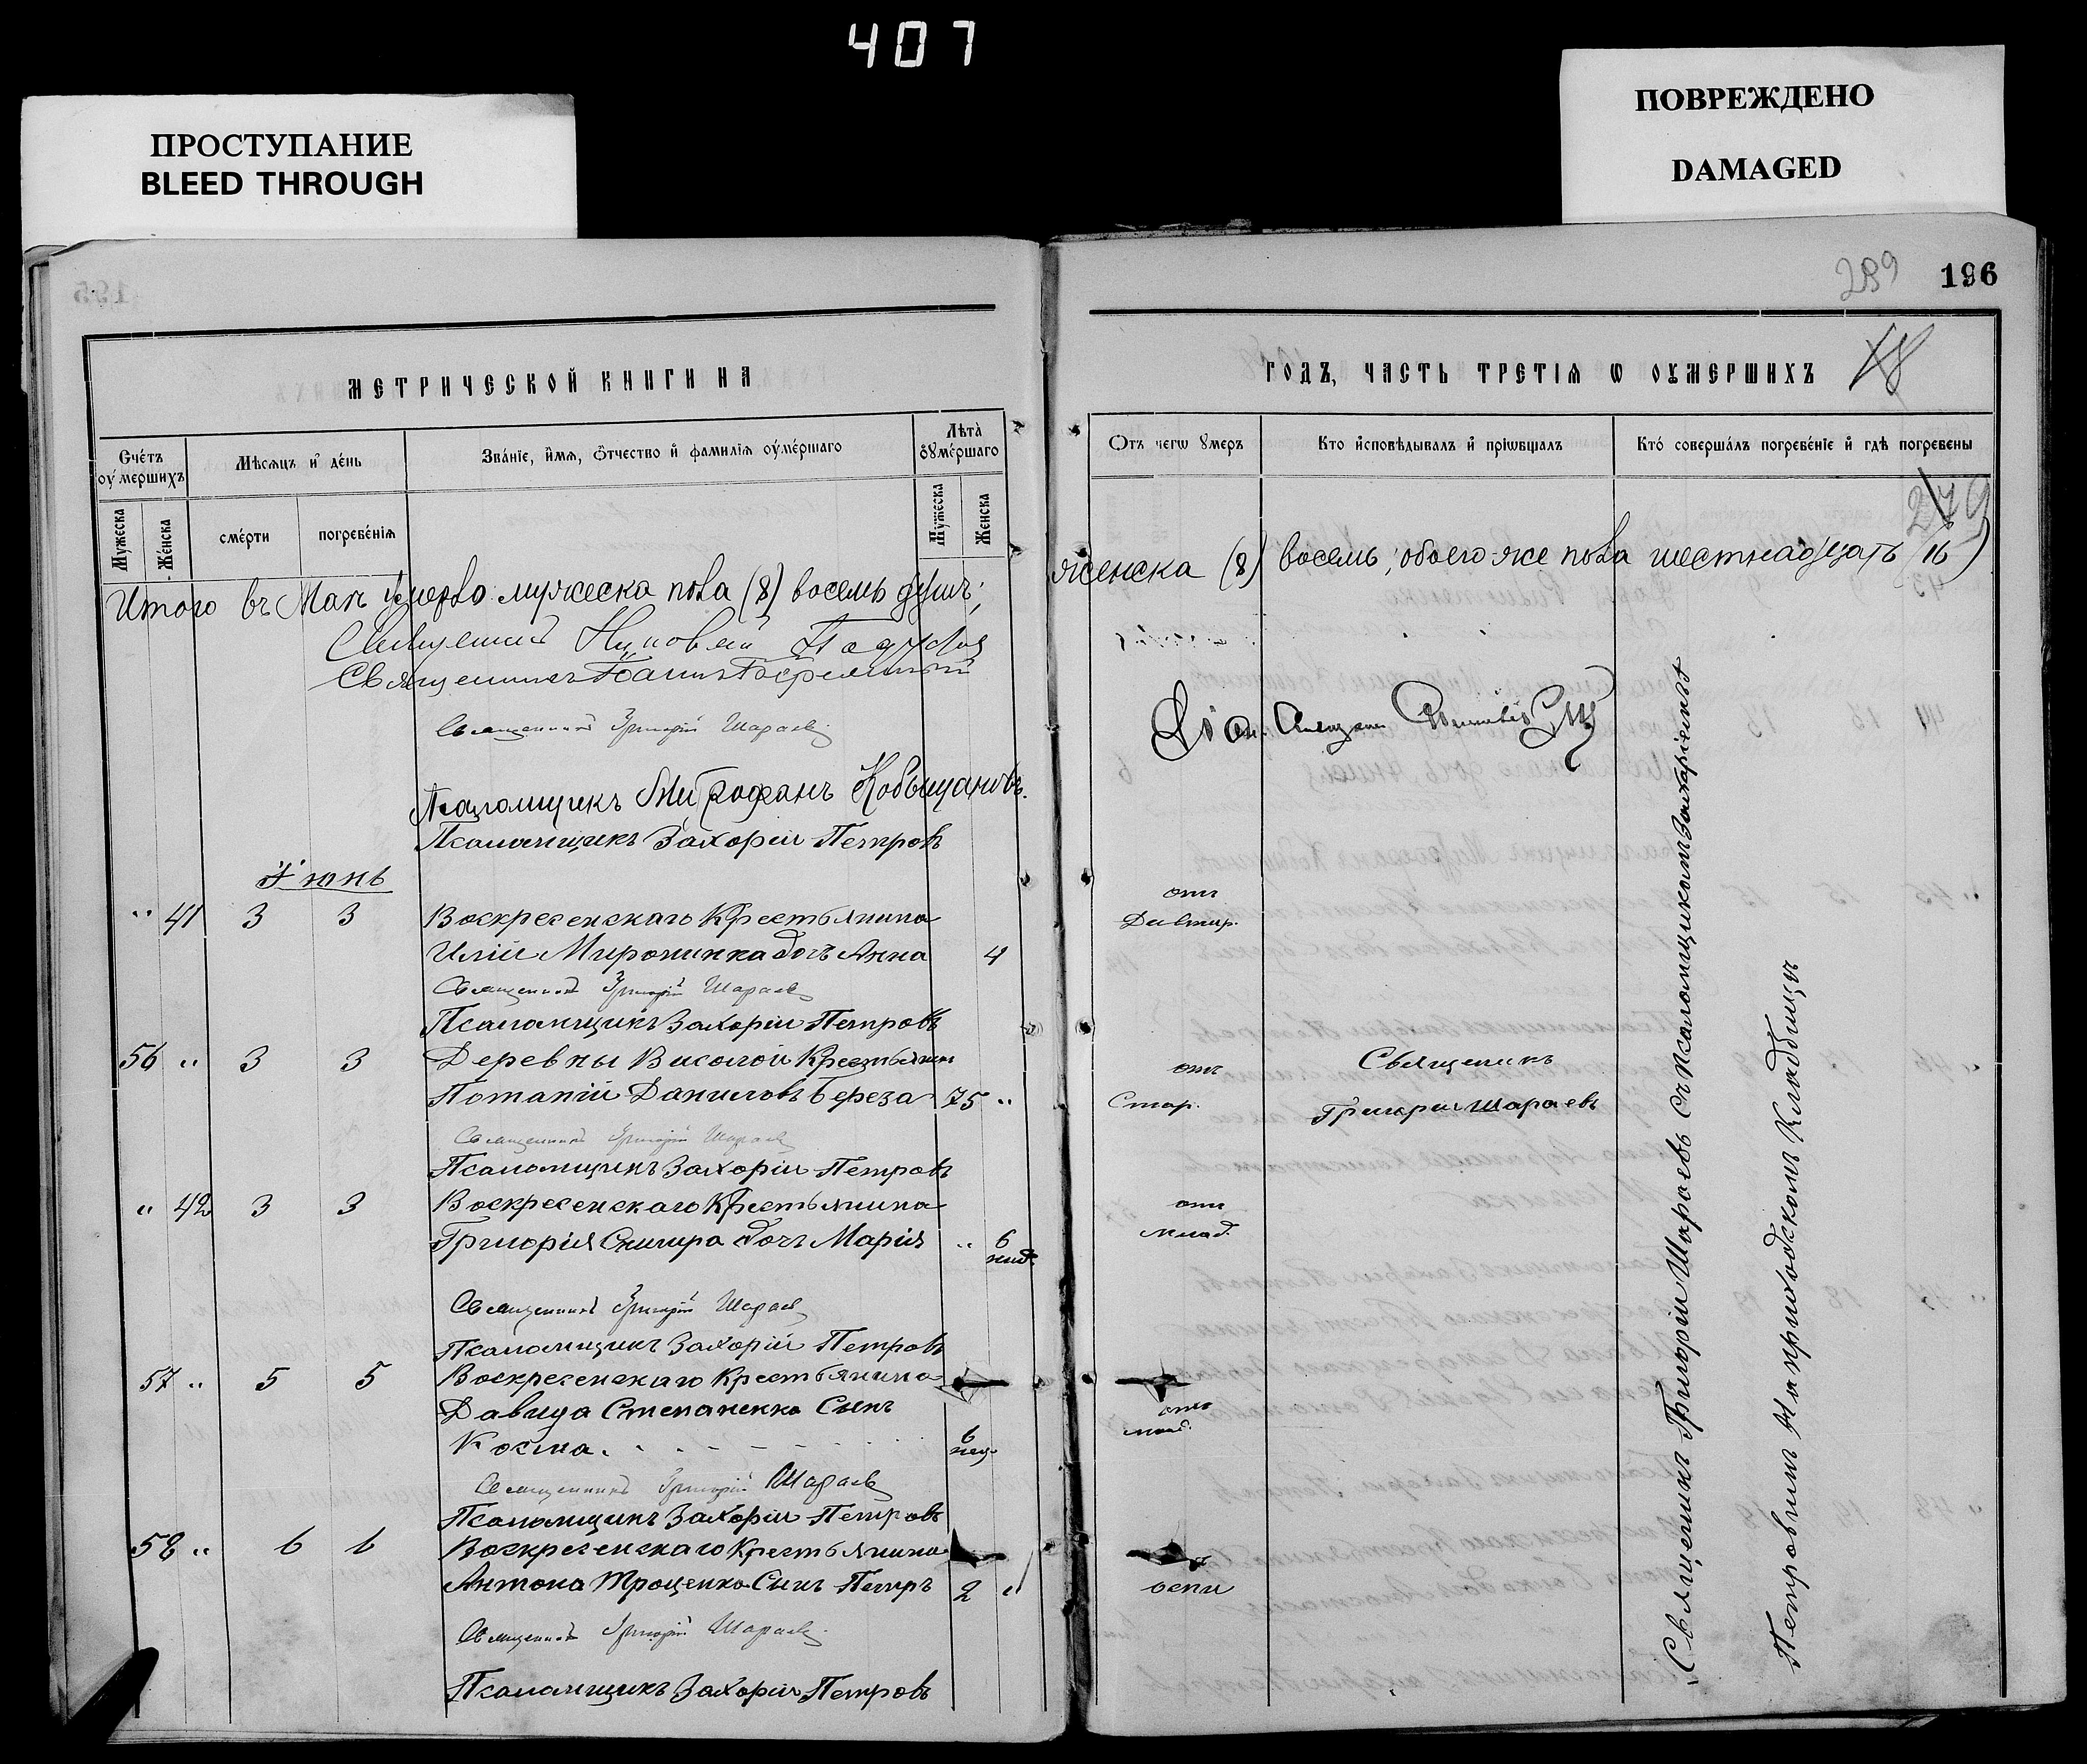 407
ПРОСТУПАНИЕ
BLEED THROUGH
ПОВРЕЖДЕНО
DAMAGED
289 196
МЕТРИЧЕСКОЙ КНИГИ НА
Счётъ оумершихъ
Мѣсяцъ и день
Званїе, имя, ѿчество и фамилїя оумершаго
Лѣта оумершаго
Мужеска
Женска
смерти
погребенїя
Мужеска
Женска
Итого въ Маѣ умерло мужеска пола (8) восемь душъ;
Священникъ
Священникъ
Священникъ Григорій Шараевъ
Псаломщикъ Митрофанъ Кобыщановъ.
Псаломщикъ Захорій Петровъ
Іюнь
" 41 3 3 Воскресенскаго Крестьянина
Иліи Миронинка дочь Анна 4
Священникъ Григорій Шараевъ
Псаломщикъ Захорій Петровъ
56 " 3 3 Деревны Висолой Крестьянин
Потапій Даниловъ Береза 75 "
Священникъ Григорій Шараевъ
Псаломщикъ Захорій Петровъ
" 42 3 3 Воскресенскаго Крестьянина
Григорія Снигира дочь Марія " 6 нид.
Священникъ Григорій Шараевъ
Псаломщикъ Захорій Петровъ
57 " 5 5 Воскресенскаго Крестьянина
Давида Степаненко Сынъ
Косма. 6 мец.
Священникъ Григорій Шараевъ
Псаломщикъ Захорій Петровъ
58 " 6 6 Воскресенскаго Крестьянина
Антона Троценко Сынъ Петръ 2 "
Священникъ Григорій Шараевъ
Псаломщикъ Захорій Петровъ
ГОДЪ, ЧАСТЬ ТРЕТІЯ Ѡ ОУМЕРШИХЪ
Отъ чегѡ умеръ
Кто исповѣдывалъ и прїѡбщалъ
Кто совершалъ погребенїе и гдѣ погребены
279
женска (8) восемь; обоего-же пола шестнадцать (16)
отъ
Дивтир.
отъ
Стар.
Священикъ
Григорій Шараевъ
отъ
млад.
отъ
млад.
оспи
Священикъ Григорій Шараевъ съ псаломщикомъ Захаріемъ
Петровимъ на приходскомъ Кладбищѣ